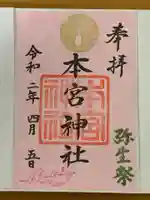 奉拝
弥生祭
本宮神社
令和二年四月五日